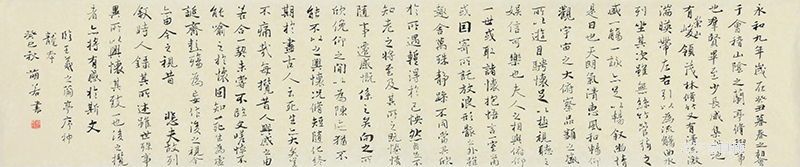 永和九年歲在癸丑暮春之初會
于會稽山陰之蘭亭脩禊事
也群賢畢至少長咸集此地
有崇山峻領茂林脩竹又有清流激
湍暎帶左右引以為流觴曲水
列坐其次雖無絲竹管弦之
盛一觴一詠亦足以暢敘幽情
是日也天朗氣清惠風和暢仰
觀宇宙之大俯察品類之盛
所以遊目騁懷足以極視聽之
娛信可樂也夫人之相與俯仰
一世或取諸懷抱悟言一室之內
或因寄所託放浪形骸之外雖
趣舍萬殊靜躁不同當其欣
於所遇暫得於己怏然自足不
知老之將至及其所之既惓情
隨事遷感慨係之矣向之所
欣俛仰之閒以為陳迹猶不
能不以之興懷況脩短隨化終
期於盡古人云死生亦大矣豈
不痛哉每攬昔人興感之由
若合一契未嘗不臨文嗟悼不
能喻之於懷固知一死生為虛
誕齊彭殤為妄作後之視今
亦由今之視昔 悲夫故列
敘時人錄其所述雖世殊事
異所以興懷其致一也後之攬
者亦將有感於斯文
臨王羲之蘭亭序神
龍本
癸巳秋 書